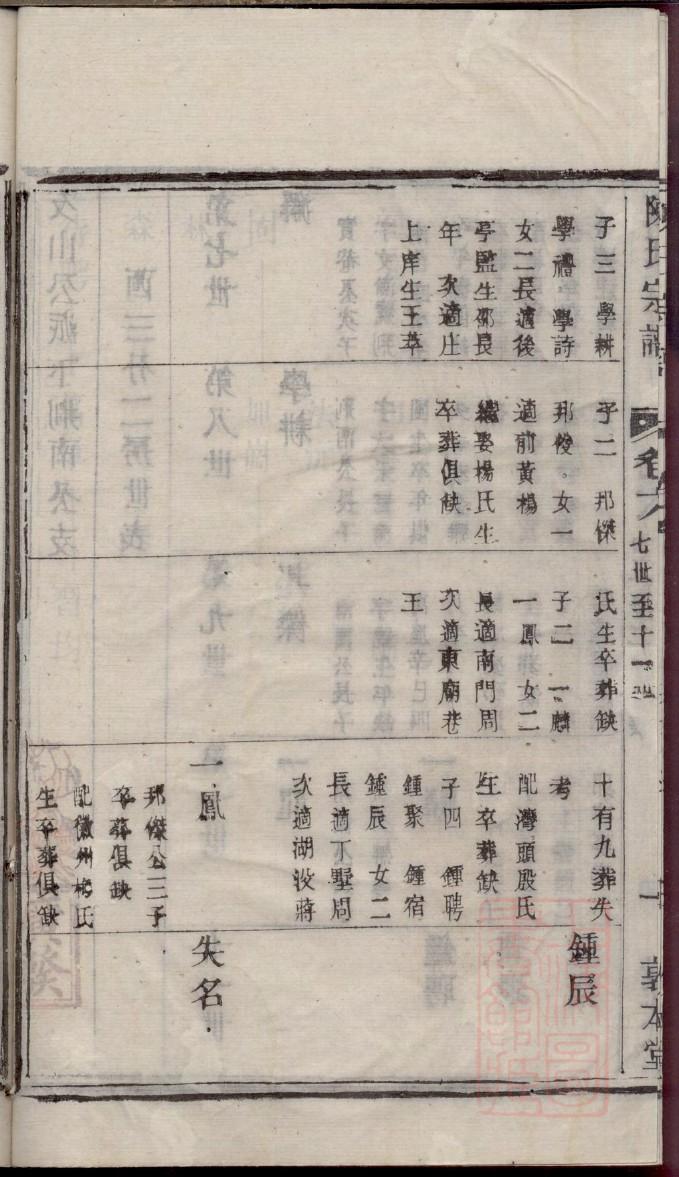 陳氏宗譜
卷六
七世至十一世
一
敦本堂
子三　學耕
學禮　學詩
女二長適後
亭監生邵長
年　次適庄
上庠生王萃
子二　邦傑
邦俊。女一
適前黃楊
繼娶楊氏生
卒葬俱缺
氏生卒葬缺
子二　一麟
一鳳　女二
長適南門周
次適東廟巷
王
十有九葬失
考
配灣頭殷氏
生卒葬缺
子四　鍾聘
鍾聚　鍾宿
鍾辰　女二
長適丁墅周
次適湖㳇蔣
一鳳
邦傑公二子
卒葬俱缺
配徽州楊氏
生卒葬俱缺
鍾辰
失名